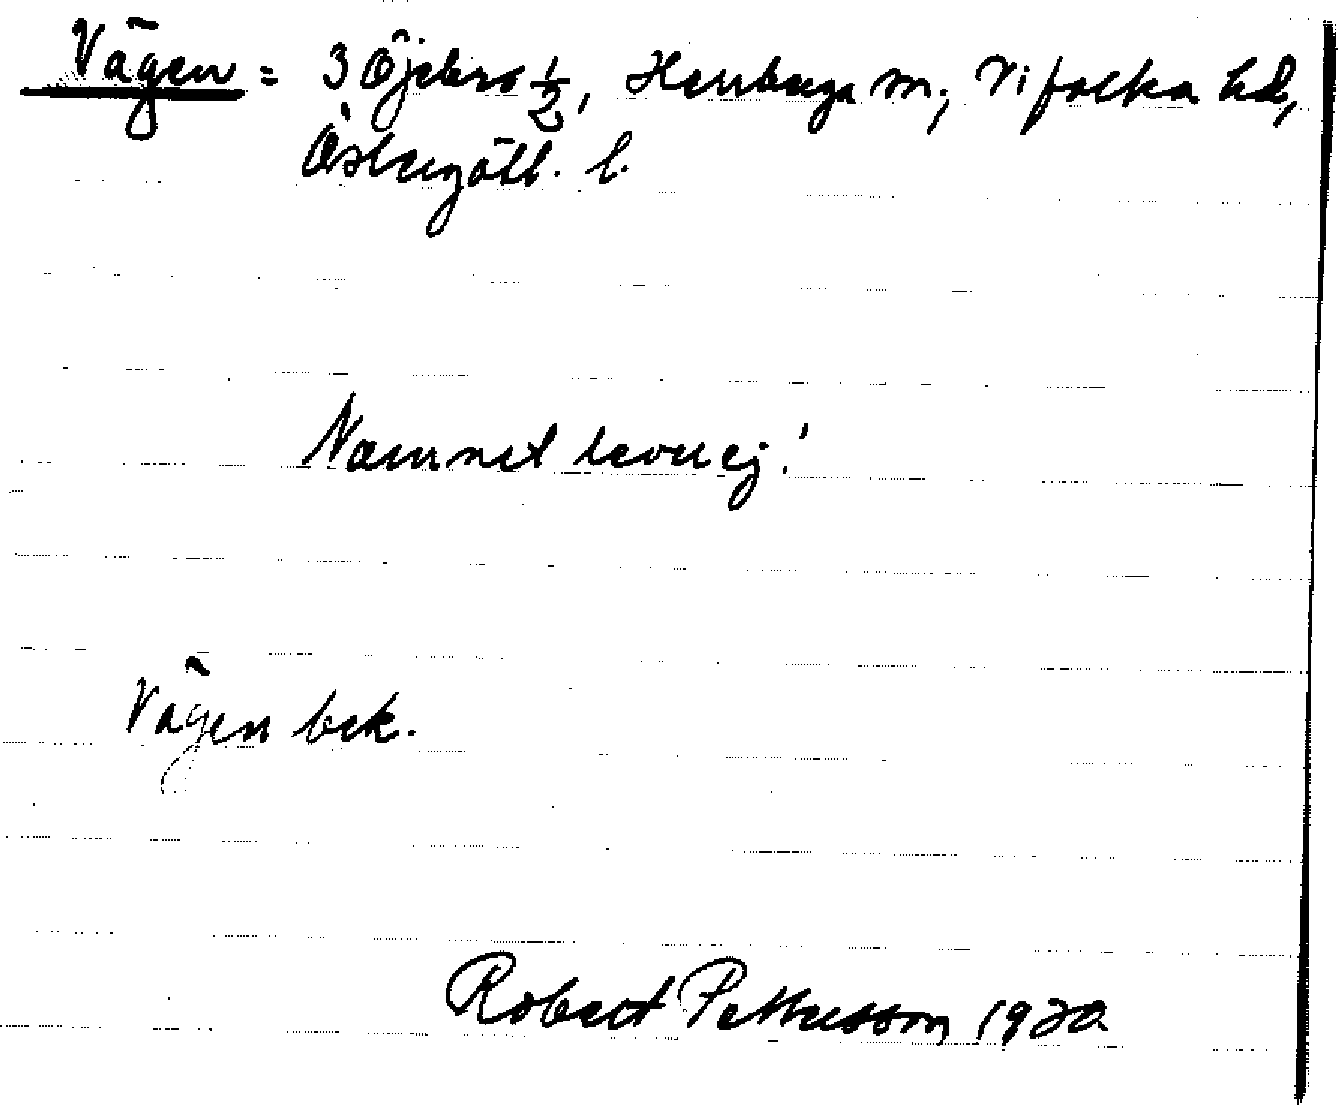 Vägen = 3 Öjebro ½, Herrberga sn; Vifolka hd,
Östergötl. l.
Namnet lever ej!
Vägen bek.
Robert Pettersson 1930